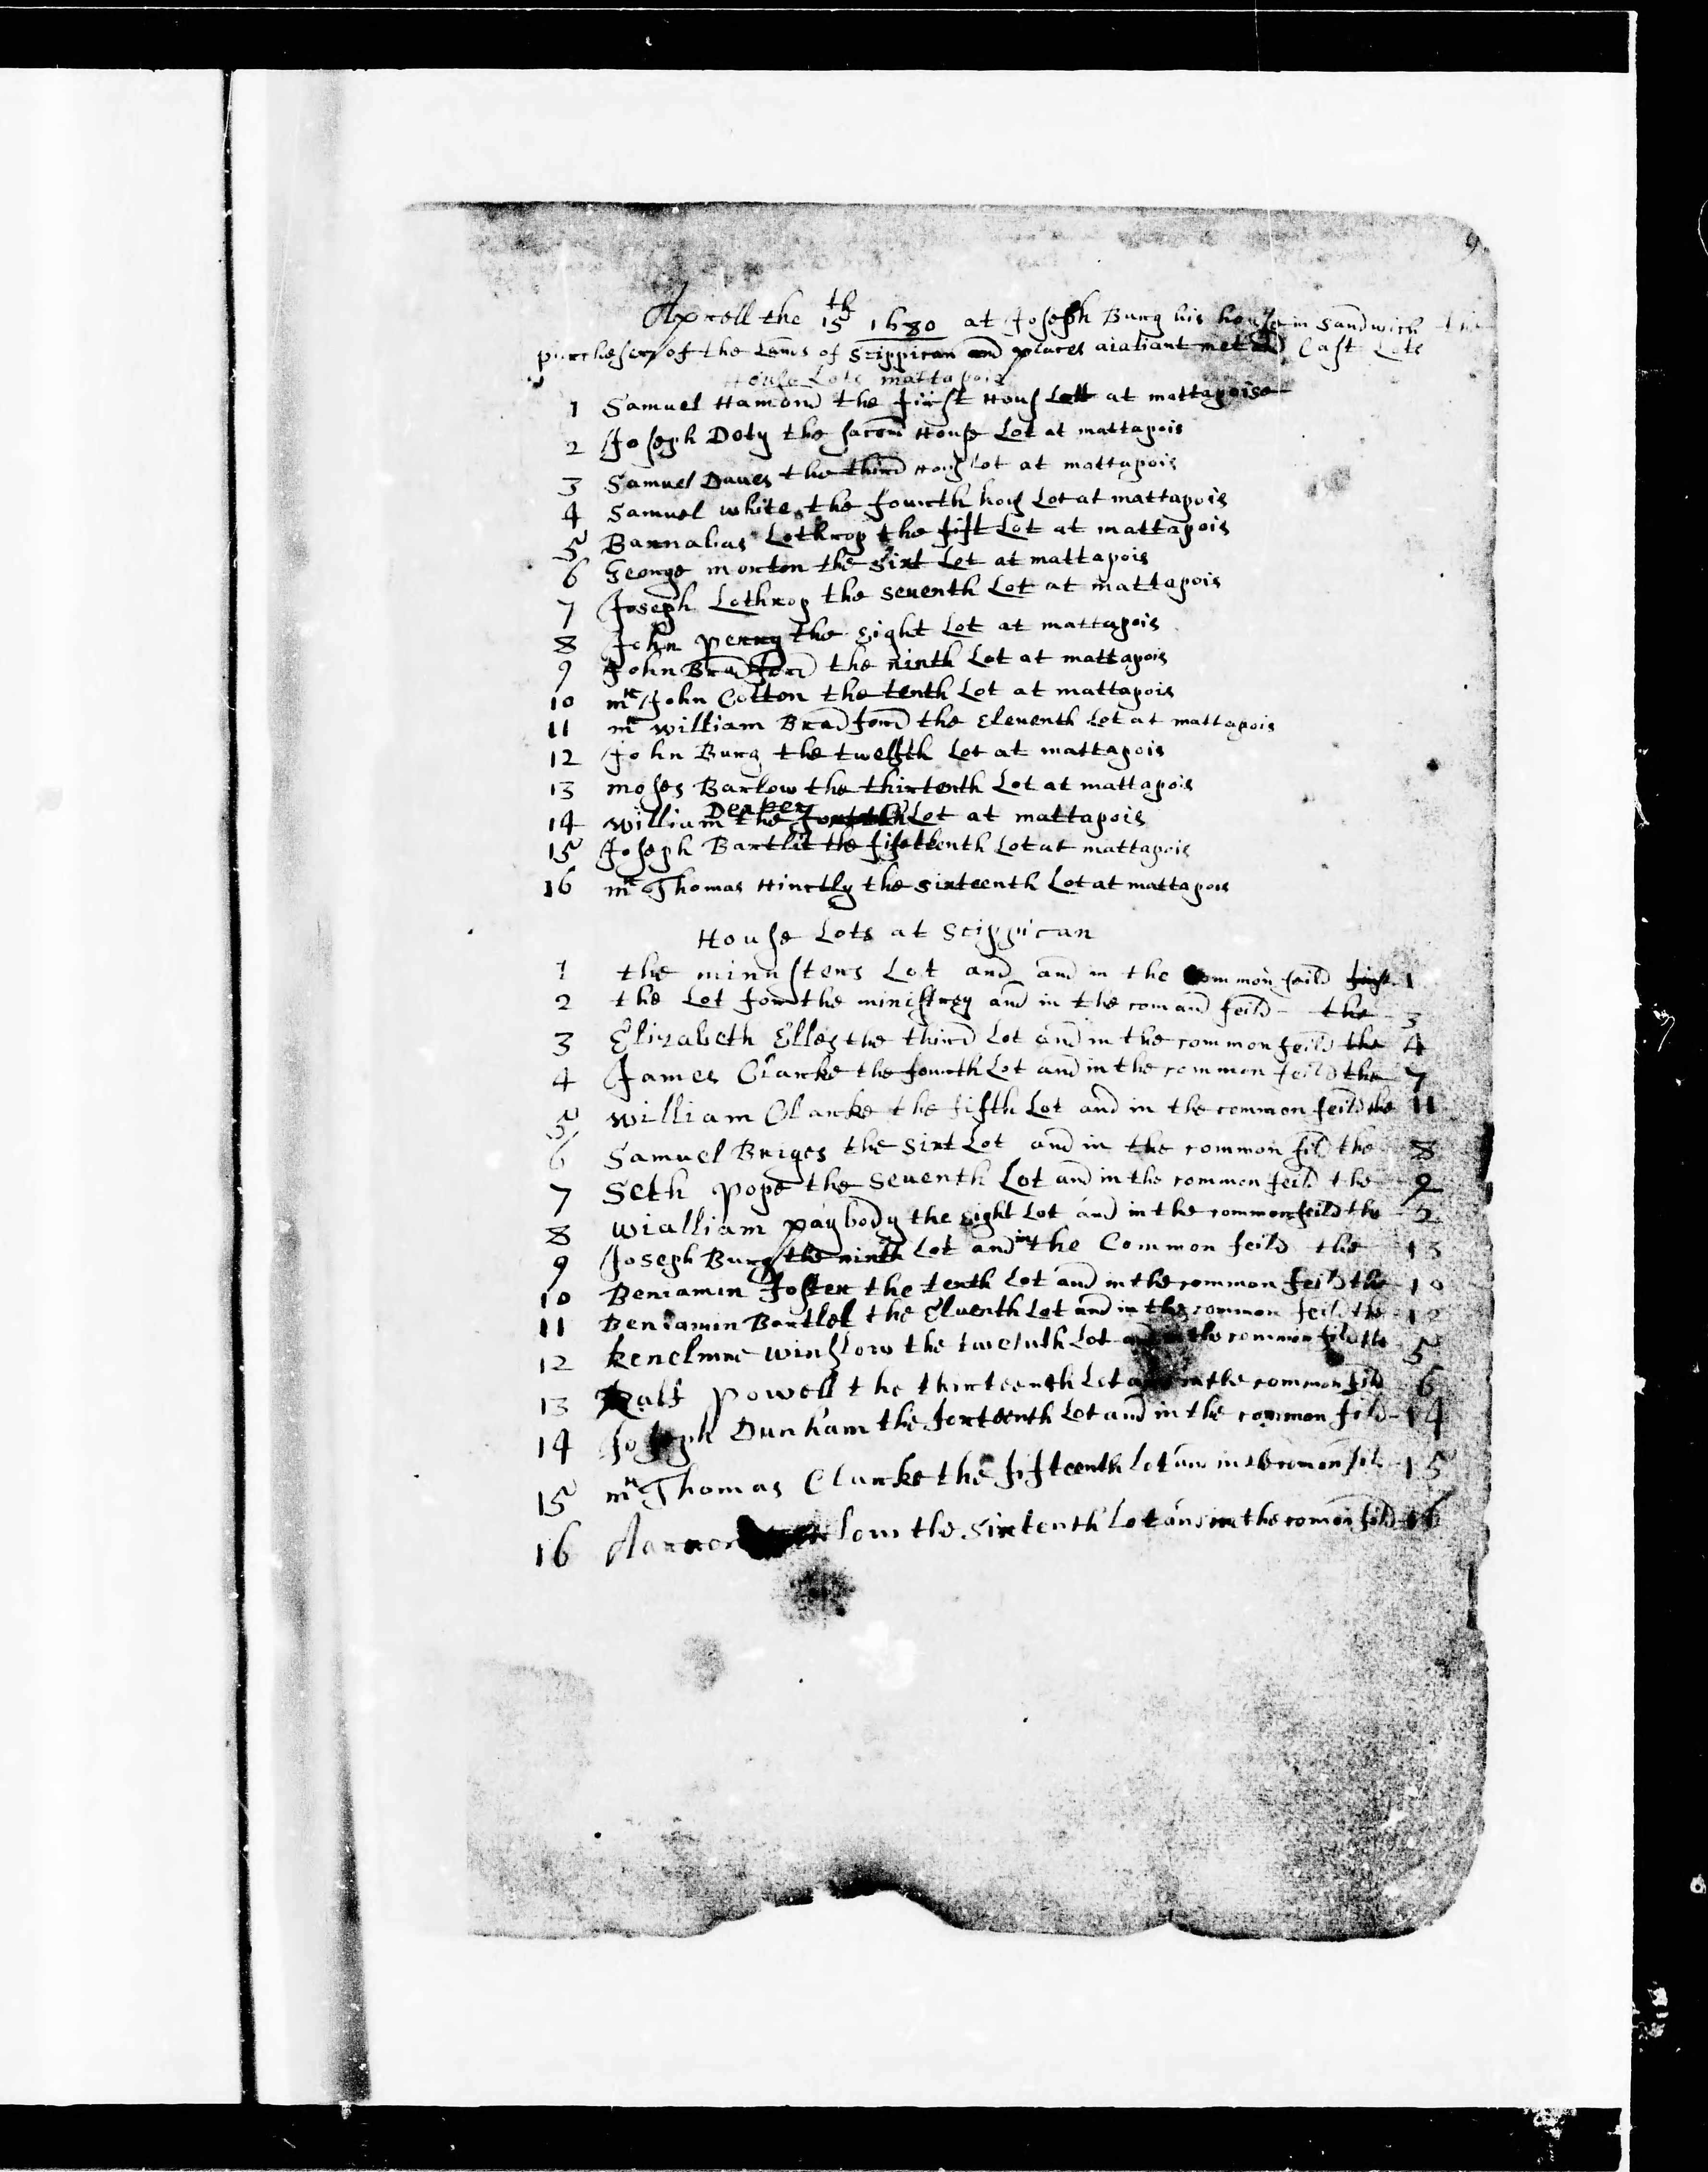 9
Aprell the 15th 1680 at Joseph Burg his house in Sandwich the
purchesers of the Lands of Scippican and places aiatiant met and Cast Lots
House Lots mattapois
1 Samuel Hamond the first Hous Lott at mattapoise
2 Joseph Doty the sacond House Lot at mattapois
3 Samuel Daues the third Hous Lot at mattapois
4 Samuel white the fourth hous Lot at mattapois
5 Barnabas Lothrop the fift Lot at mattapois
6 George morton the sixt Lot at mattapois
7 Joseph Lothrop the seuenth Lot at mattapois
8 John perry the eight Lot at mattapois
9 John Bradford the ninth Lot at mattapois
10 mr John Cotton the tenth Lot at mattapois
11 mr william Bradford the Eleuenth Lot at mattapois
12 John Burg the twelfth Lot at mattapois
13 moses Barlow the thirtenth Lot at mattapois
14 william Deaper the Lot at mattapois
15 Joseph Bartlit the fifeteenth Lot at mattapois
16 mr Thomas Hinctly the sixteenth Lot at mattapois
House Lots at Scippican
1 the minnsters Lot and and in the Common feild first 1
2 the Lot for the ministrey and in the comand feild - the 3
3 Elizabeth Elles the third Lot and in the common feild the 4
4 James Clarke the fourth Lot and in the common feild the 7
5 william Clarke the fifth Lot and in the common feild the 11
6 Samuel Briges the sixt Lot and in the common fild the 8
7 Seth pope the seuenth Lot and in the common feild the 9
8 wialliam paybody the eight Lot and in the common feild the 2
9 Joseph Burg the ninth Lot and in the Common feild the 13
10 Beniamin Foster the tenth Lot and in the common feild the 10
11 Beniamin Bartlet the Eluenth Lot and in the common feild the 12
12 kenelmne winslow the twelulth Lot the common fild the 5
13 Ralf powell the thirteenth Lot in the common fild 6
14 Joseph Dunham the forteenth Lot and in the common fild - 14
15 mr Thomas Clarke the fifteenth lot and in the comon fild - 15
16 low the sixtenth Lot and in the comon fild 16